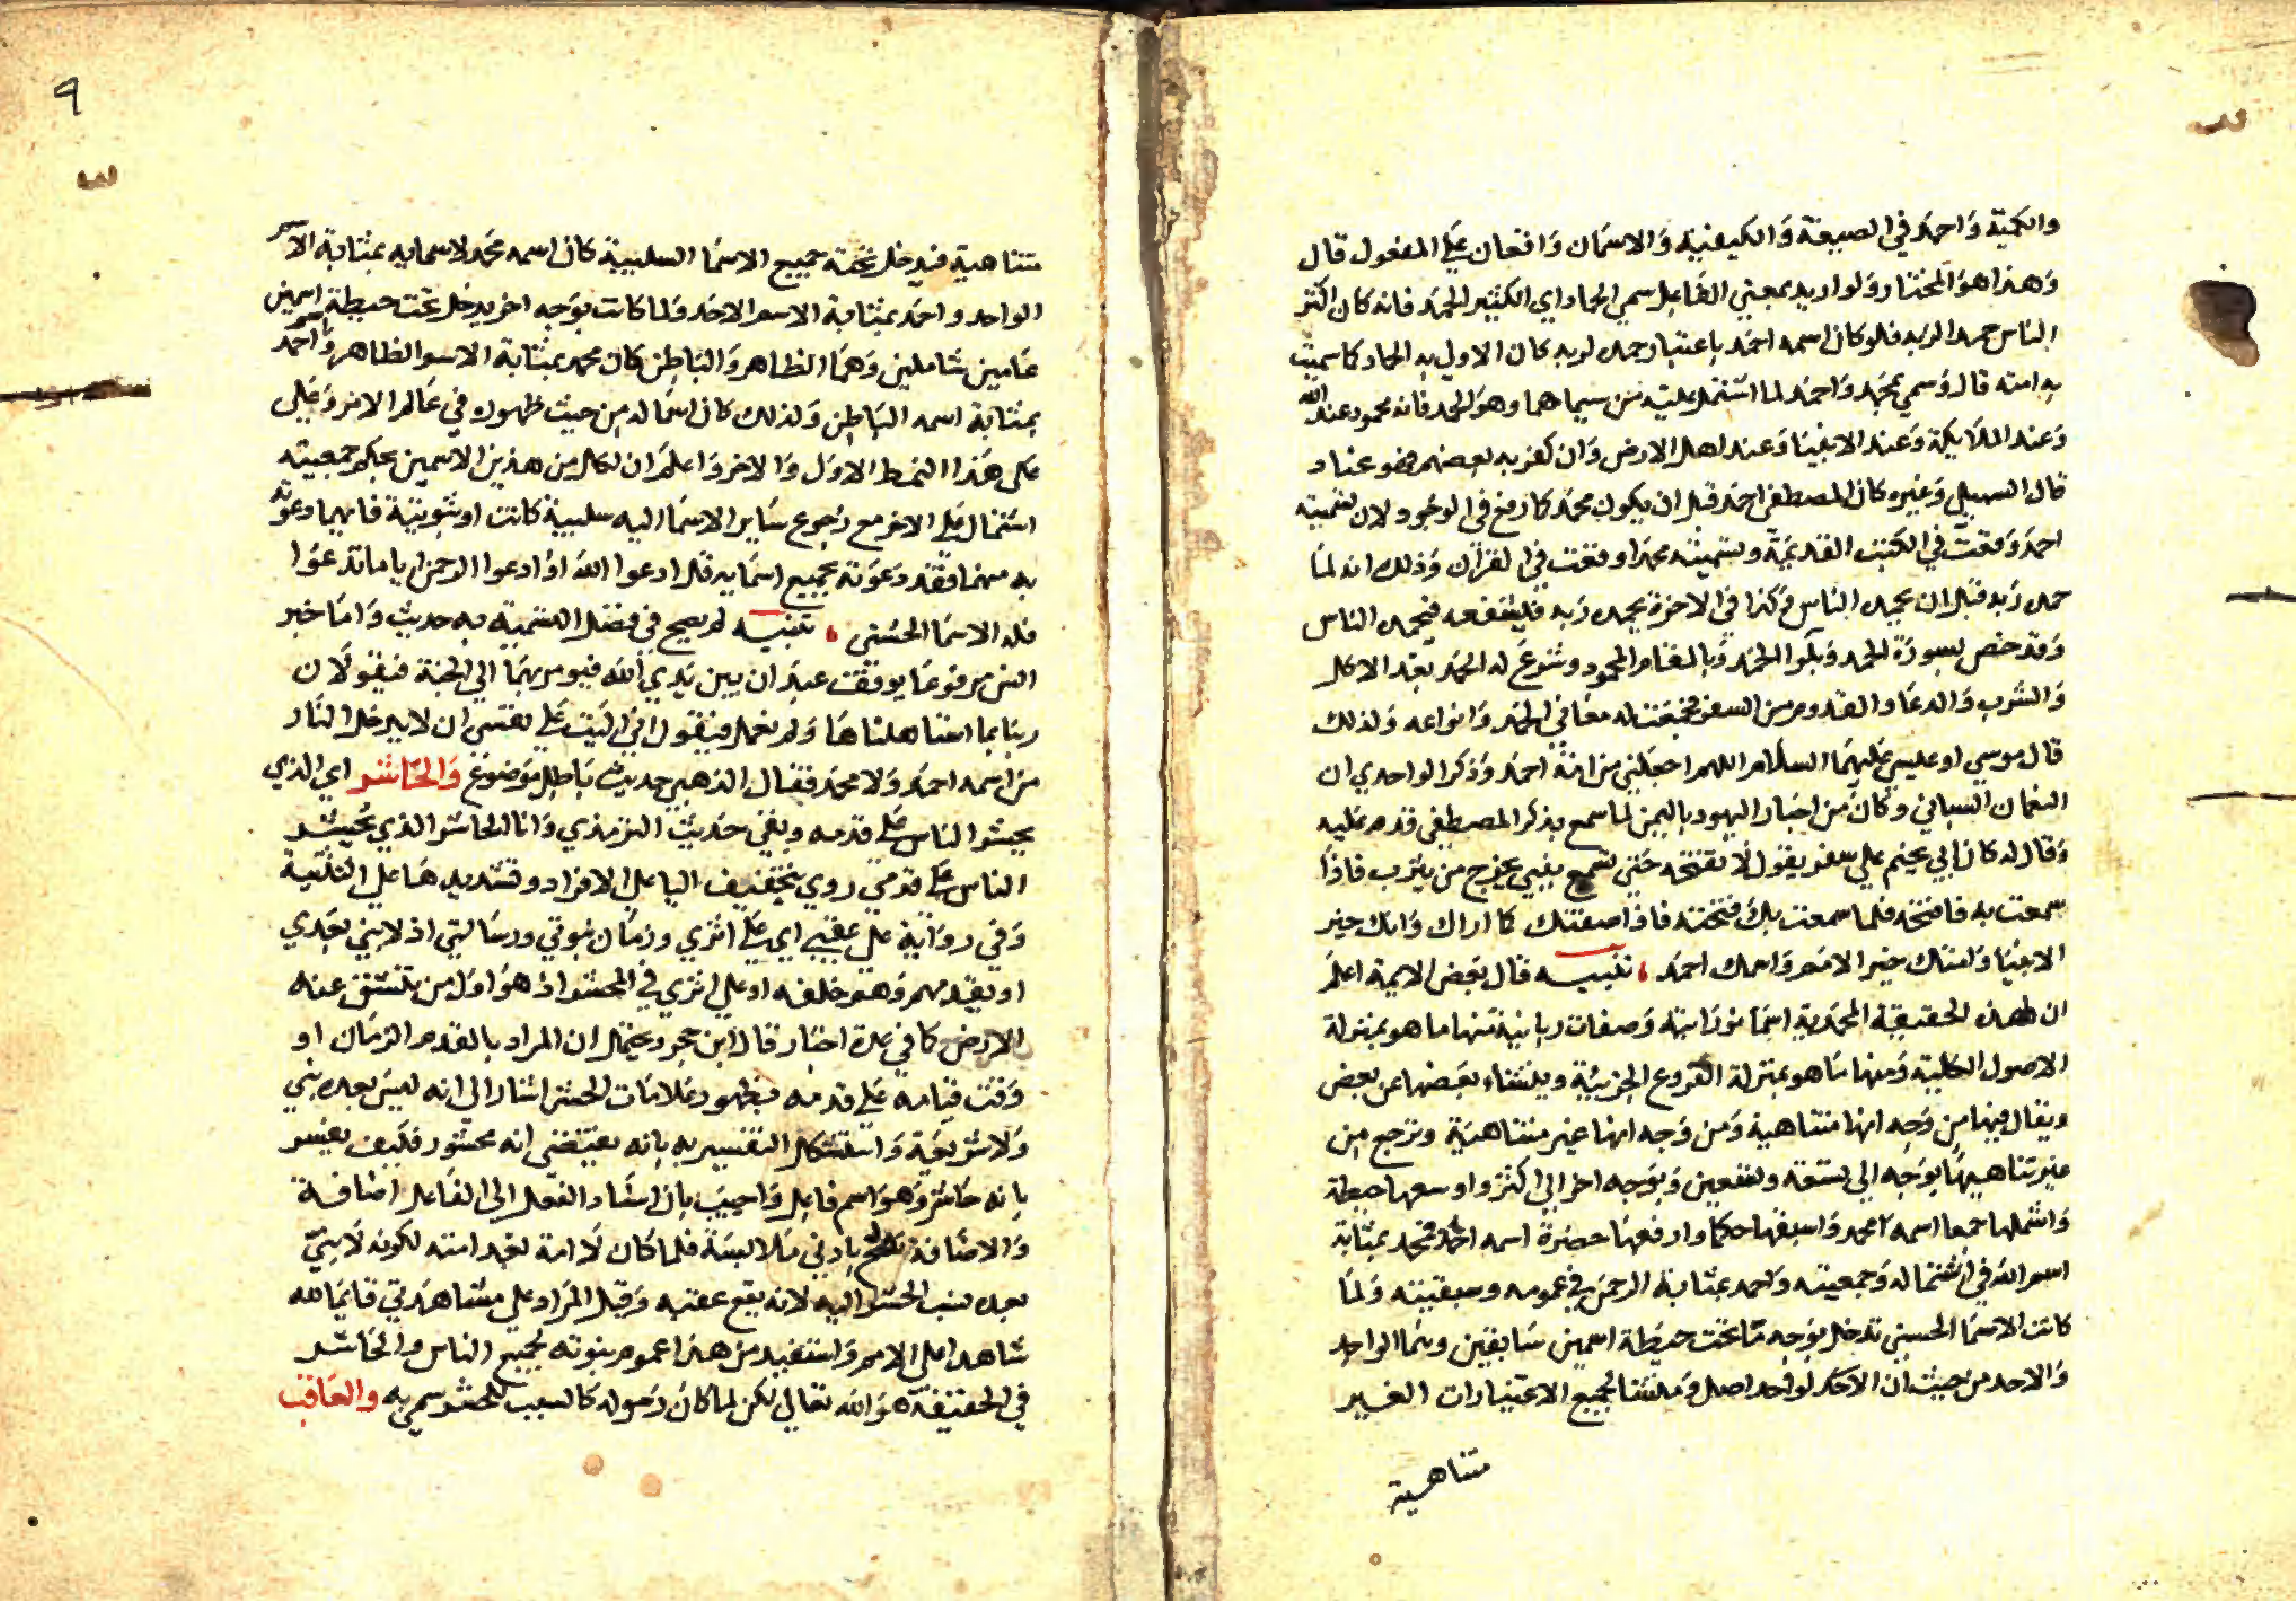 والكمية واحمد في الصيغة والكيفية والاسمان واقعان علي المفعول قال
وهذا هو المختار ولو اريد بمعني الفاعل سمي الحماد اي الكثير الحمد فانه كان اكثر
الناس حمدا لربه فلو كان اسمه احمد باعتبار حمده لربه كان الاولي به الحماد كما سميت
به امته قال وسمي بمحمد واحمد لما اشتمل عليه من سيماهما وهو الحمد فانه محمود عند الله
وعند الملايكة وعند الانبيا وعند اهل الارض وان كفر به بعضهم فهو عناد
قال السهيلي وغيره كان المصطفي احمد قبل ان يكون محمد كما وقع في الوجود لان تسميته
احمد وقعت في الكتب القديمة وتسميته محمدا وقعت في القران وذلك انه لما
حمد ربه قبل ان يحمده الناس وكذا في الاخرة يحمد ربه فيشفعه فيحمده الناس
وقد خص بسورة الحمد وبلوا الحمد وبالمقام المحمود وشرع له الحمد بعد الاكل
والشرب والدعا والقدوم من السفر فجمعت له معاني الحمد وانواعه ولذلك
قال موسي او عيسي عليهما السلام اللهم اجعلني من امة احمد وذكر الواحدي ان
النعمان السباني وكان من احبار اليهود باليمن لما سمع بذكر المصطفي قدم عليه
وقال له كان ابي يختم علي سفر يقول لا تفتحه حتي تسمع بنبي يخرج من يثرب فاذا
سمعت به فافتحه فلما سمعت بك فتحته فاذا صفتك كما اراك وانك خير
الانبيا وامتك خير الامم واسمك احمد ، تنبيه قال بعض الايمة اعلم
ان لهذه الحقيقة المحمدية اسما نورانية وصفات ربانية منها ما هو بمنزلة
الاصول الكلية ومنها ما هو بمنزلة الفروع الجزيية وينشاء بعضها عن بعض
ويقال فيها من وجه انها متناهية ومن وجه انها غير متناهية وترجع من
غير تناهيها بوجه الي تسعة وتسعين وبوجه اخر الي اكثر واوسعها حيطة
واشملها جمعا اسمه محمد واسبقها حكما وارفعها حضرة اسمه احمد فمحمد بمثابة
اسم الله في اشتماله وجمعيته واحمد بمثابة الرحمن في عمومه وسبقيته ولما
كانت الاسما الحسني تدخل بوجه ما تحت حيطة اسمين سابقين وهما الواحد
والاحد من حيث ان الاحد لواحد اصل ومنشا لجميع الاعتبارات الغير
متناهية
٩
متناهية فيدخل تحته جميع الاسما السلبية كان اسمه محمد لاسمايه بمثابة الاسم
الواحد واحمد بمثابة الاسم الاحد ولما كانت بوجه اخر يدخل تحت حيطة اسمين
عامين شاملين وهما الظاهر والباطن كان محمد بمثابة الاسم الظاهر واسم احمد
بمثابة اسمه الباطن ولذلك كان اسما له من حيث ظهوره في عالم الامر وعلي
علي هذا النمط الاول والاخر واعلم ان لكل من هذين الاسمين بحكم جمعيته
اشتمال علي الاخر مع رجوع ساير الاسما اليه سلبية كانت او ثبوتية فايهما دعوته
به منهما فقد دعوته بجميع اسمايه قل ادعوا الله او ادعوا الرحمن ايا ما تدعوا
فله الاسما الحسني ، تنبيه لم يصح في فضل التسمية به حديث واما خبر
انس مرفوعا يوقف عبدان بين يدي الله فيومر بهما الي الجنة فيقولان
ربنا بما استاهلناها ولم نعمل فيقول اني اليت علي نفسي ان لا يدخل النار
من اسمه احمد ولا محمد فقال الذهبي حديث باطل موضوع والحاشر اي الذي
يحشر الناس علي قدمه وبقي حديث الترمذي وانا الحاشر الذي يحشر
الناس علي قدمي روي بتخفيف اليا علي الافراد وتشديدها علي التثنية
وفي رواية علي عقبي اي علي اثري وزمان نبوتي ورسالتي اذ لا نبي بعدي
او يقدمهم وهم خلفه او علي اثري في المحشر اذ هو اول من تنشق عنه
الارض كما في عدة اخبار قال ابن حجر ويحتمل ان المراد بالقدم الزمان او
وقت قيامه علي قدمه بظهور علامات الحشر اشار الي انه ليس بعده نبي
ولا شريعة واستشكل التفسير به بانه يقتضي انه محشور فكيف يفسر
بانه حاشر وهو اسم فاعل واجيب بان اسناد الفعل الي الفاعل اضافة
والاضافة تصح بادني ملابسة فلما كان لا امة بعد امته لكونه لا نبي
بعده نسب الحشر اليه لانه يقع عقبه وقيل المراد علي مشاهدتي قايما لله
شاهدا علي الامم واستفيد من هذا عموم نبوته لجميع الناس والحاشر
في الحقيقة هو الله تعالي لكن لما كان رسوله كالسبب للحشر سمي به والعاقب